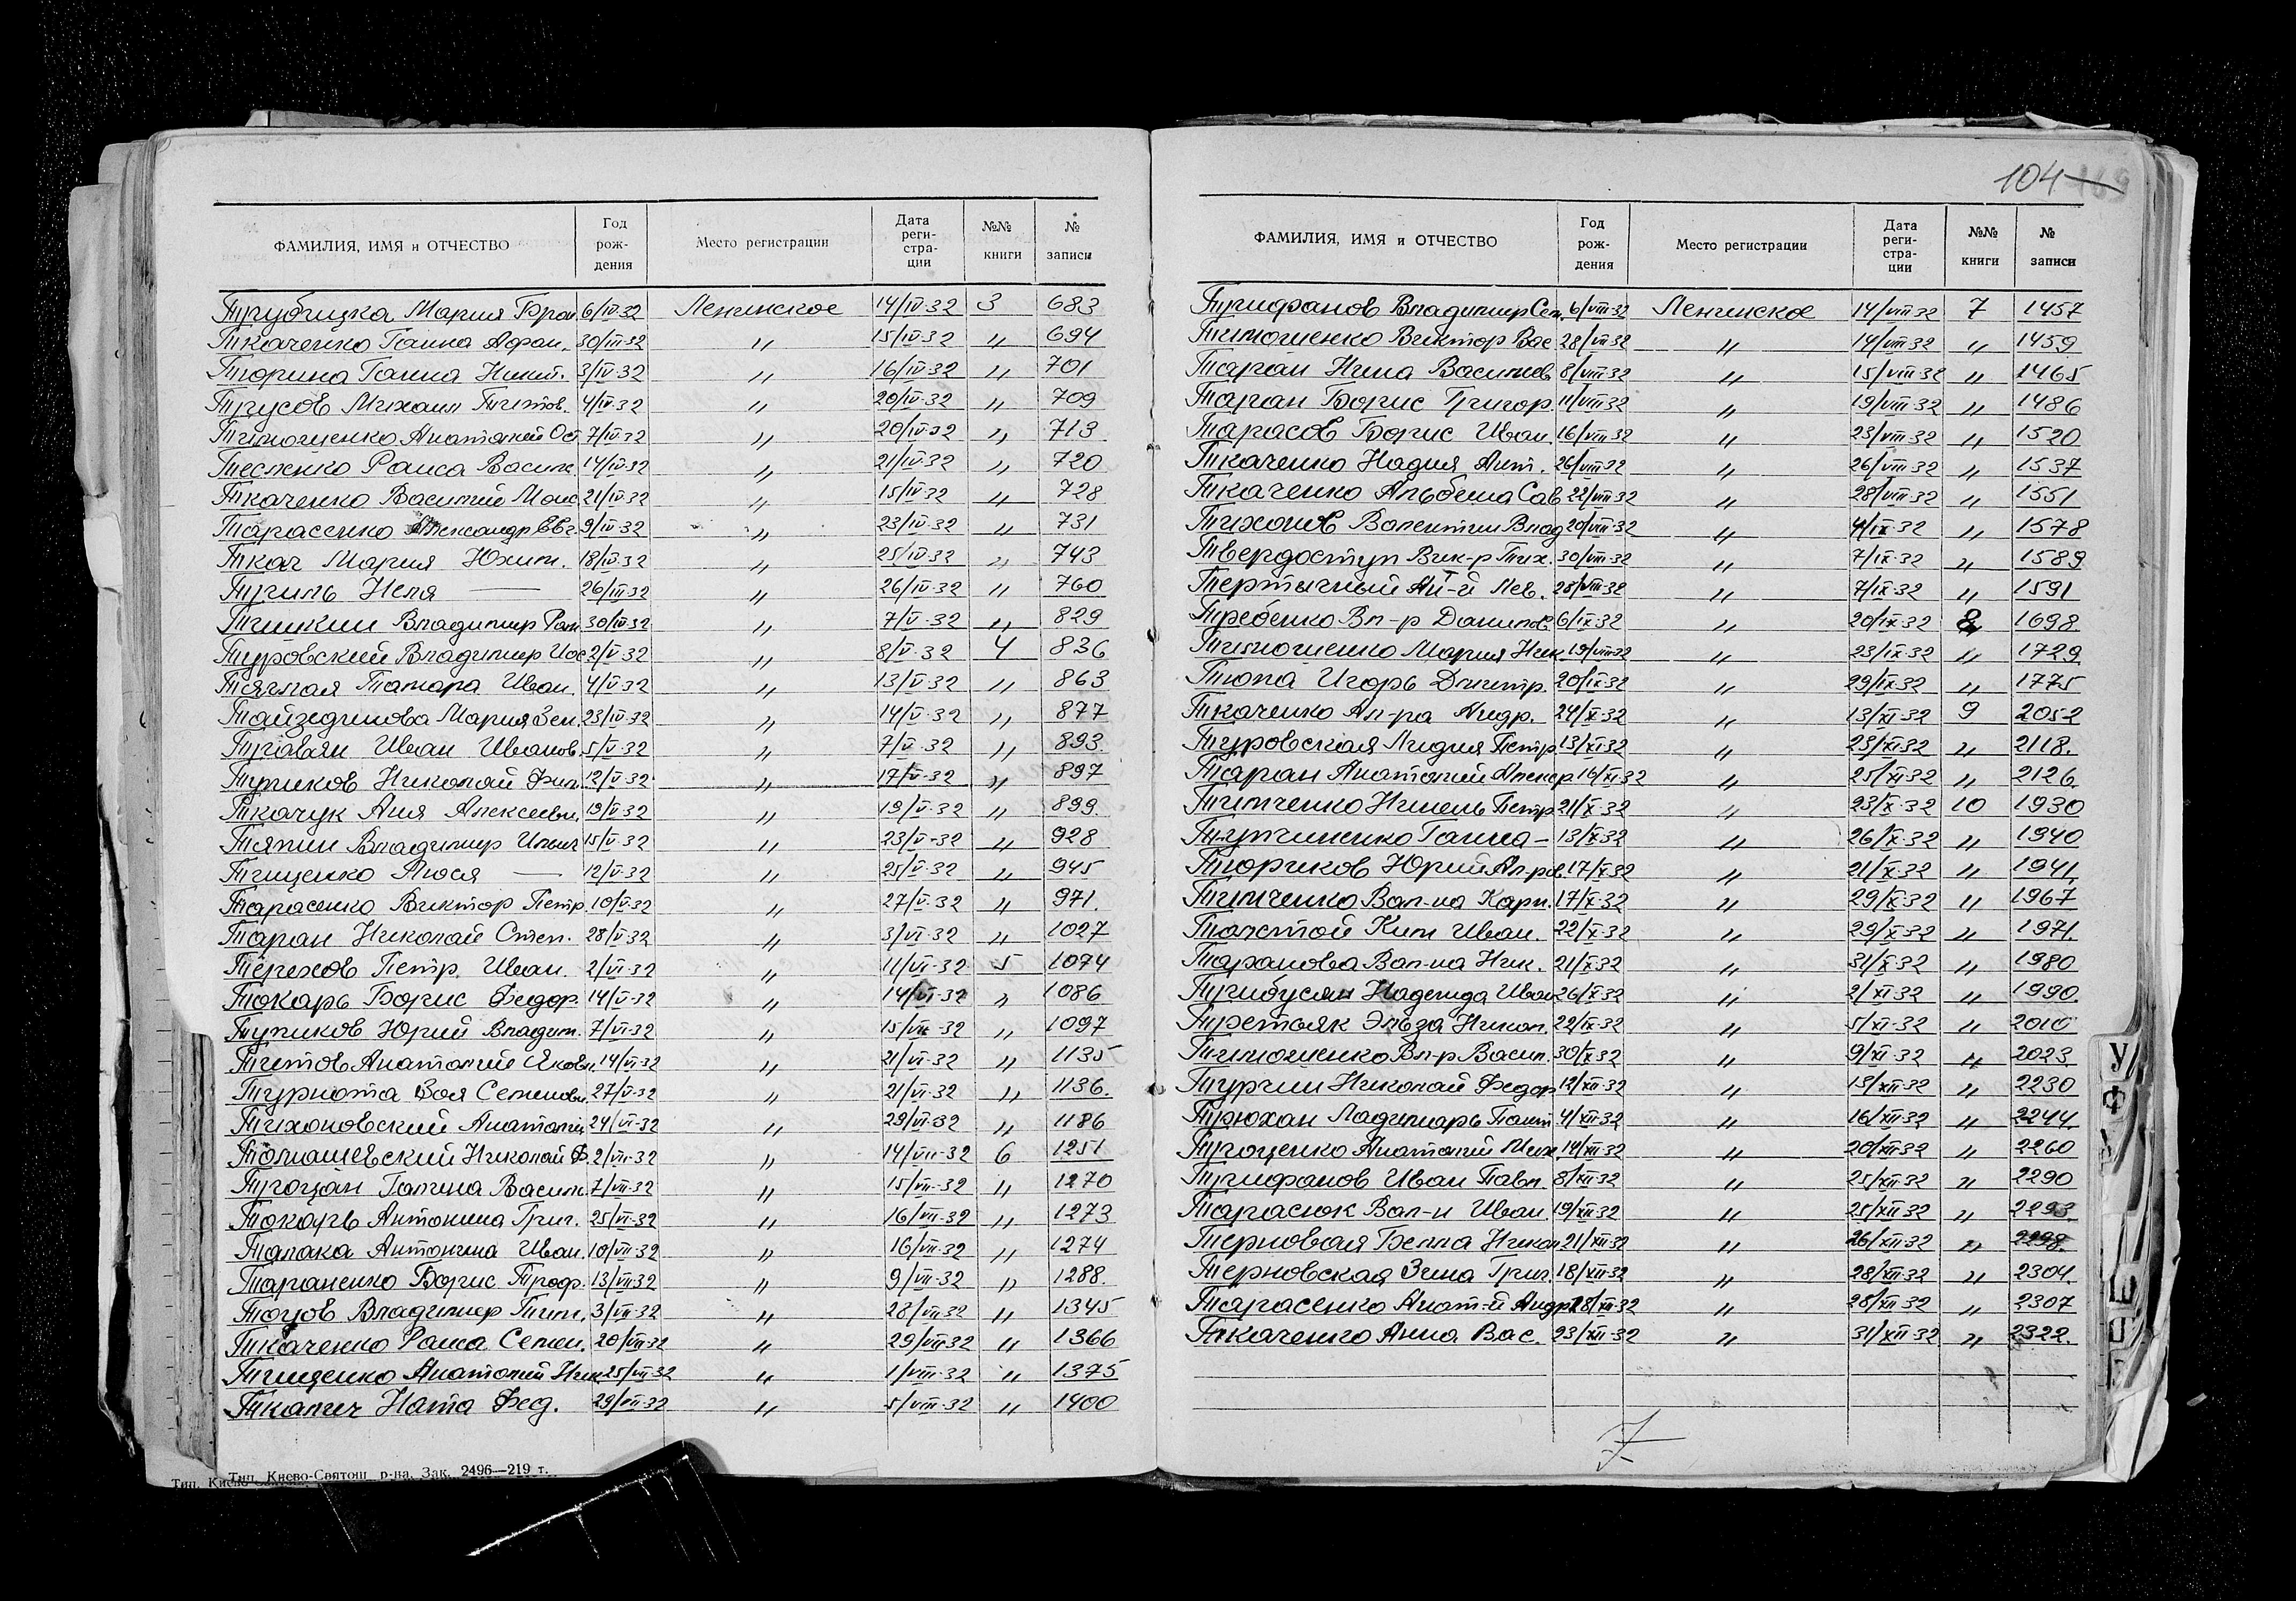 104
ФАМИЛИЯ, ИМЯ и ОТЧЕСТВО Год рождения Место регистрации Дата регистрации №№ книги № записи
Трубицка Мария 6/IV-32 Ленинское 14/IV-32 3 683
Ткаченко Ганна Афан. 30/III-32 " 15/IV-32 " 694
Тюрина Ганна Никит. 3/IV-32 " 16/IV-32 " 701
Трусов Михаил Титов. 4/IV-32 " 20/IV-32 " 709
Тимошенко Анатолий Ост 7/IV-32 " 20/IV-32 " 713
Тесленко Раиса Василь 14/IV-32 " 21/IV-32 " 720
Ткаченко Василий Моис 21/IV-32 " 15/IV-32 " 728
Тарасенко Александр Евг. 9/IV-32 " 23/IV-32 " 731
Ткач Мария Юхим. 18/IV-32 " 25/IV-32 " 743
Тригиль Неля — 26/III-32 " 26/IV-32 " 760
Тишкин Владимир Ром 30/IV-32 " 7/V-32 " 829
Туровский Владимир Иос 2/V-32 " 8/V-32 4 836
Тяглая Тамара Иван. 4/V-32 " 13/V-32 " 863
Тайзединова Мария Зен. 23/IV-32 " 14/V-32 " 877
Иван Иванов. 5/V-32 " 7/V-32 " 893
Тупиков Николай Фил. 12/V-32 " 17/V-32 " 897
Ткачук Аня Алексеевн. 19/V-32 " 19/V-32 " 899.
Тяпин Владимир Ильич 15/V-32 " 23/V-32 " 928
Тищенко Люся — 12/V-32 " 25/V-32 " 945
Тарасенко Виктор Петр. 10/V-32 " 27/V-32 " 971.
Таран Николай Степ. 28/V-32 " 3/VI-32 " 1027
Терехов Петр Иван. 2/VI-32 " 11/VI-32 5 1074
Токарь Борис Федор. 14/V-32 " 14/VI-32 " 1086
Тупиков Юрий Владим. 7/VI-32 " 15/VI-32 " 1097
Титов Анатолий Яковл. 14/VI-32 " 21/VI-32 " 1135
Турнота Зоя Семеновн. 27/V-32 " 21/VI-32 " 1136.
Тихоновский Анатолий 24/VI-32 " 29/VI-32 " 1186
Томашевский Николай Ф. 2/VII-32 " 14/VII-32 6 1251
Троцан Галина Василь. 7/VII-32 " 15/VII-32 " 1270
Токарь Антонина Григ. 25/VI-32 " 16/VII-32 " 1273
Талака Антонина Иван. 10/VII-32 " 16/VII-32 " 1274
Тараненко Борис Троф. 13/VII-32 " 9/VII-32 " 1288.
Владимир Тим. 3/VII-32 " 28/VII-32 " 1345
Ткаченко Раиса Семен. 20/VII-32 " 29/VII-32 " 1366
Тищенко Анатолий Ник 25/VII-32 " 1/VIII-32 " 1375
Ткалич Ната Фед. 29/VII-32 " 5/VIII-32 " 1400
Тип. Киево-Святош. р-на. Зак. 2496—219 т.
ФАМИЛИЯ, ИМЯ и ОТЧЕСТВО Год рождения Место регистрации Дата регистрации №№ книги № записи
Трифанов Владимир Сем. 6/VIII-32 Ленинское 14/VIII-32 7 1457
Тимошенко Виктор Вас 28/VII-32 " 14/VIII-32 " 1459
Таран Нина Васильев 8/VIII-32 " 15/VIII-32 " 1465
Таран Борис Григор. 11/VIII-32 " 19/VIII-32 " 1486
Тарасов Борис Иван. 16/VIII-32 " 23/VIII-32 " 1520
Ткаченко Надия Ант. 26/VIII-32 " 26/VIII-32 " 1537
Ткаченко Альбина Сав 22/VIII-32 " 28/VIII-32 " 1551
Тихонов Валентин Влад 20/VIII-32 " 4/IX-32 " 1578
Твердоступ Вик-р Тих. 30/VIII-32 " 7/IX-32 " 1589
Тертычный Ан-й Лев. 28/VIII-32 " 7/IX-32 " 1591
Требенко Вл-р Данилов. 6/IX-32 " 20/IX-32 8 1698
Тимошенко Мария Ник 19/VIII-32 " 23/IX-32 " 1729
Тюпа Игорь Дмитр. 20/IX-32 " 29/IX-32 " 1775
Ткаченко Ал-ра Андр. 24/X-32 " 13/XI-32 9 2052
Туровская Лидия Петр 13/XI-32 " 23/XI-32 " 2118.
Таран Анатолий 16/XI-32 " 25/XI-32 " 2126.
Тимченко Нинель Петр 21/X-32 " 23/X-32 10 1930
Тупчиненко Ганна — 13/X-32 " 26/X-32 " 1940
Тюриков Юрий Ал-ров. 17/X-32 " 21/X-32 " 1941.
Тимченко Вал-на Карп. 17/X-32 " 29/X-32 " 1967
Толстой Ким Иван. 22/X-32 " 29/X-32 " 1971.
Таранова Вал-на Ник. 21/X-32 " 31/X-32 " 1980
Надежда Иван 26/X-32 " 2/XI-32 " 1990.
Третьяк Эльза Никол. 22/IX-32 " 5/XI-32 " 2010
Тимошенко Вл-р Васил. 30/X-32 " 9/XI-32 " 2023
Турчин Николай Федор 12/XII-32 " 13/XII-32 " 2230
Трюхан Ладимарь Пант 4/XII-32 " 16/XII-32 " 2244
Троценко Анатолий Мих 14/XII-32 " 20/XII-32 " 2260
Трифанов Иван Павл. 8/XII-32 " 25/XII-32 " 2290
Тарасюк Вал-н Иван. 19/XII-32 " 25/XII-32 " 2293.
Терновая Белла Никол 21/XII-32 " 26/XII-32 " 2298.
Терновская Зина Григ. 18/XII-32 " 28/XII-32 " 2304
Тарасенко Анат-й Андр 18/XII-32 " 28/XII-32 " 2307
Ткаченко Анна Вас. 23/XII-32 " 31/XII-32 " 2322.
У
Ф
Ш